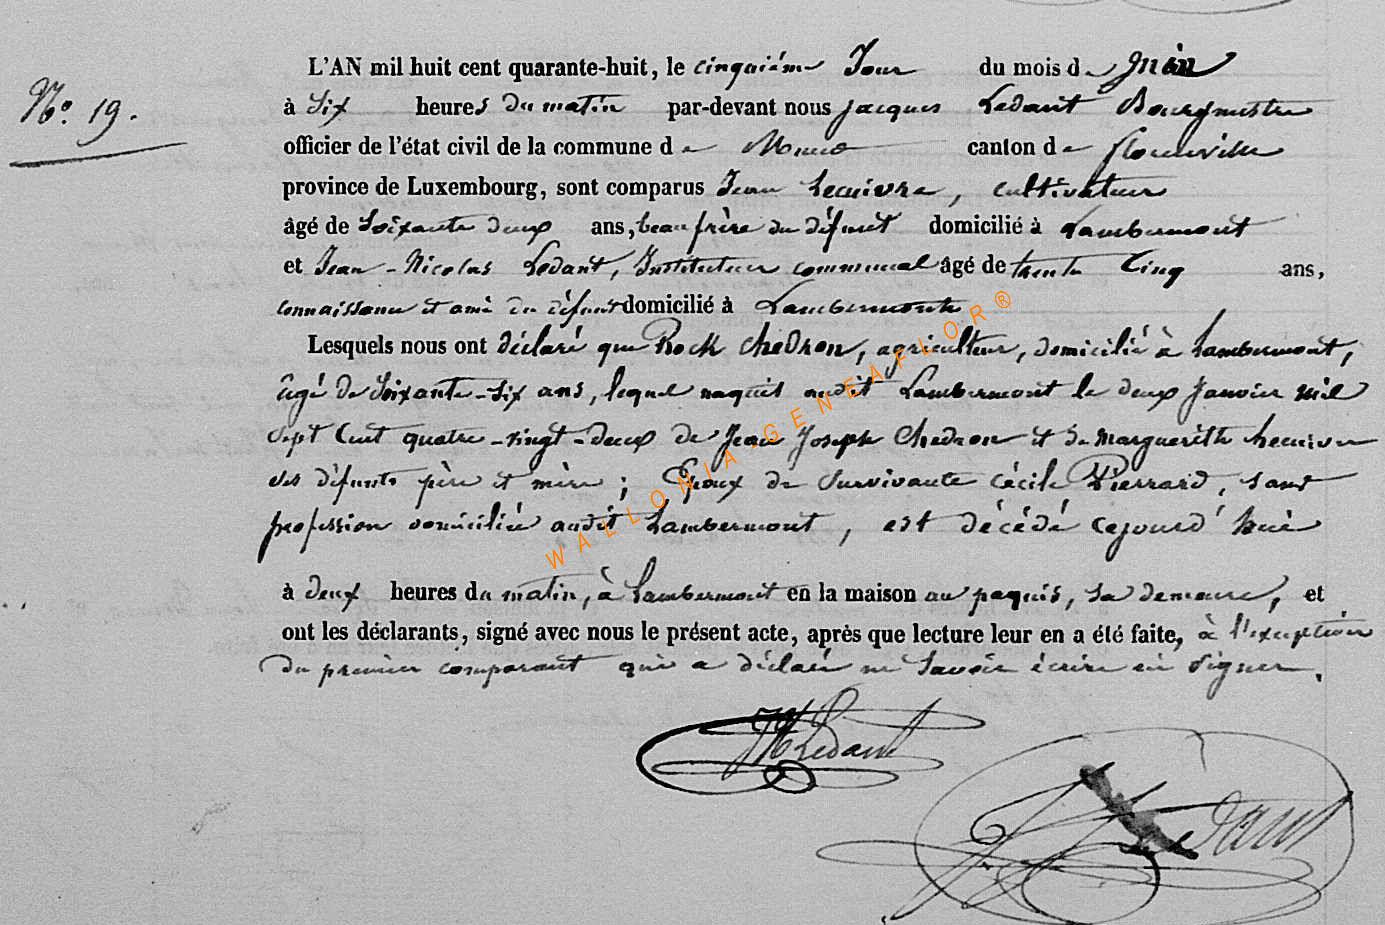 N.º 19.
L'AN mil huit cent quarante-huit, le cinquième Jour du mois de Juin
à Six heures du matin par-devant nous Jacques Ledant Bourgmestre
officier de l'état civil de la commune de Muno canton de florenville
province de Luxembourg, sont comparus Jean Lecuivre, cultivateur
âgé de Soixante deux ans, beau frère du défunt domicilié à Lambermont
et Jean-Nicolas Ledant, Instituteur communal âgé de trente Cinq ans,
connaissance et ami du défunt domicilié à Lambermont
Lesquels nous ont déclaré que Rock Chedron, agriculteur, domicilié à Lambermont,
âgé de Soixante-Six ans, lequel naquit audit Lambermont le deux Janvier mil
Sept Cent quatre-vingt-deux de Jean Joseph Chedron et de Marguerithe Lecuivre
ses défunts père et mère ; Epoux de Survivante Cécile Pierrard, Sans
profession domiciliée audit Lambermont, est décédé cejourd'hui
à deux heures du matin, à Lambermont en la maison au paquis, sa demeure, et
ont les déclarants, signé avec nous le présent acte, après que lecture leur en a été faite, à l'exception
du premier comparant qui a déclaré ne Savoir écrire ni Signer.
Ledant
WALLONIA-GENEAFLOR®